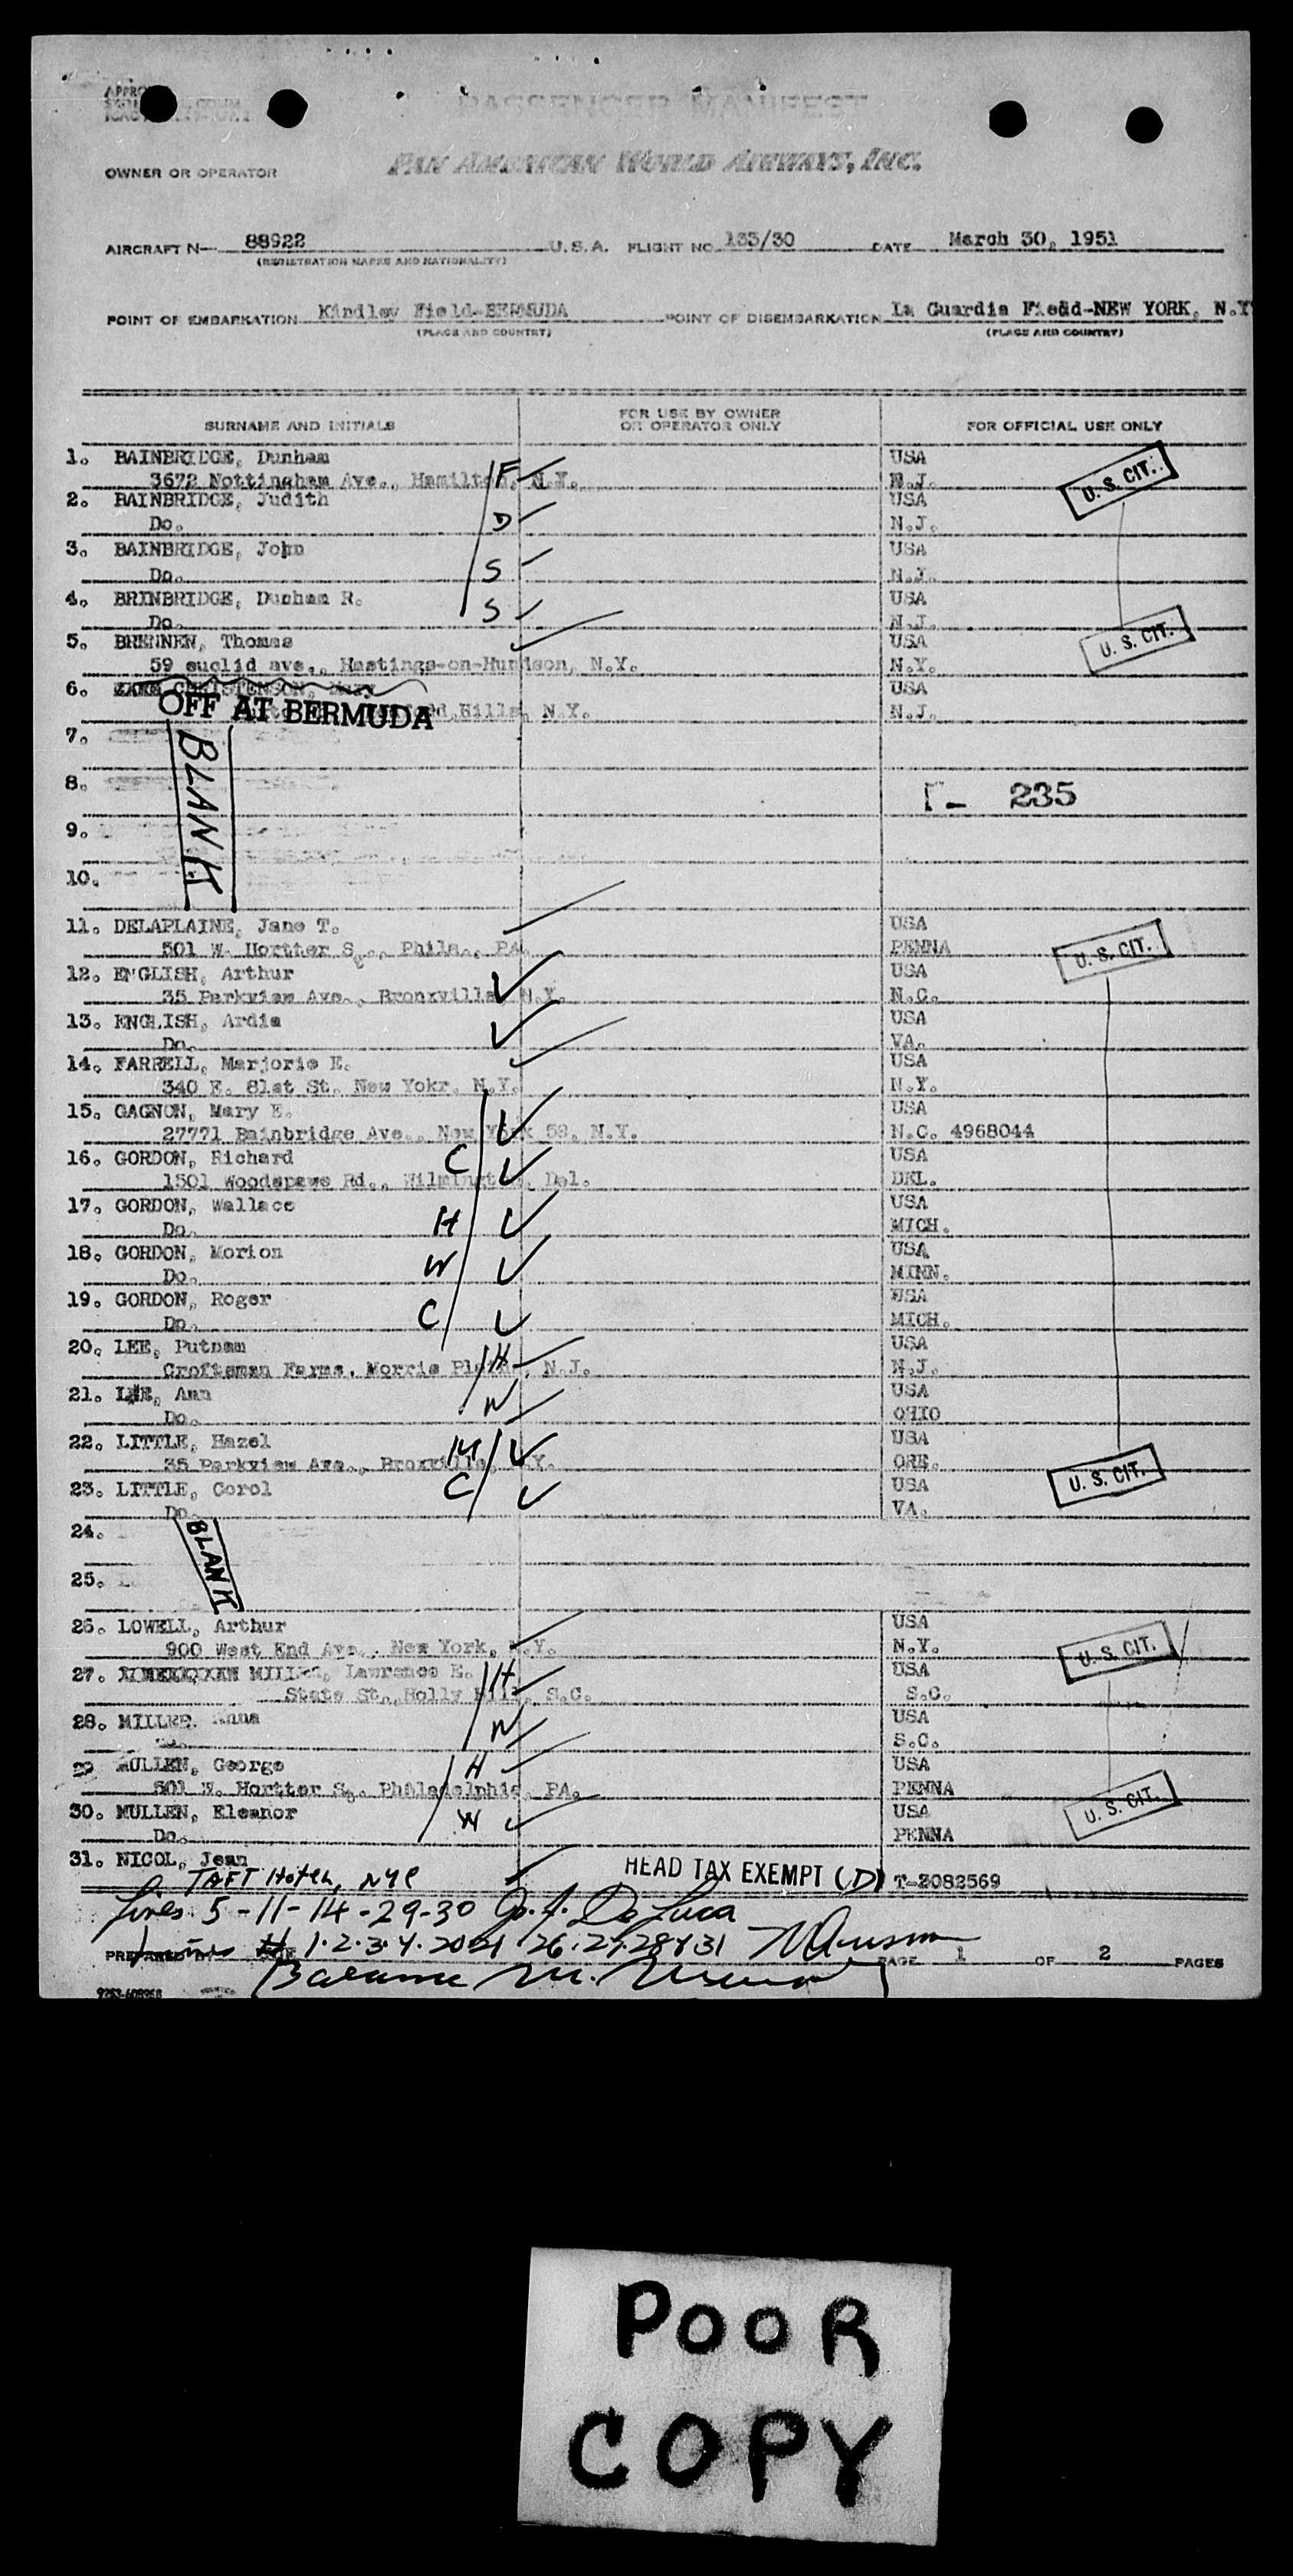 PASSENGER MANIFEST
PAN AMERICAN WORLD AIRWAYS, INC.
OWNER OR OPERATOR
AIRCRAFT N— 88922 U.S.A. FLIGHT NO. 135/30 DATE March 30, 1951
(REGISTRATION MARKS AND NATIONALITY)
POINT OF EMBARKATION Kindley Field-BERMUDA POINT OF DISEMBARKATION La Guardia Fiedd-NEW YORK, N.Y
(PLACE AND COUNTRY) (PLACE AND COUNTRY)
SURNAME AND INITIALS FOR USE BY OWNER OR OPERATOR ONLY FOR OFFICIAL USE ONLY
1. BAINBRIDGE, Dunham USA
3672 Nottingham Ave., Hamilton, N.Y. F N.J. U. S. CIT.
2. BAINBRIDGE, Judith USA
Do. D N.J.
3. BAINBRIDGE, John USA
Do. S N.J.
4. BRINBRIDGE, Dunham R. USA
Do. S N.J.
5. BRENNEN, Thomas USA U. S. CIT.
59 euclid ave., Hastings-on-Hundson, N.Y. N.Y.
6. CHRISTENSON, USA
OFF AT BERMUDA Hills, N.Y. N.J.
7.
BLANK
8. 235
9.
10.
11. DELAPLAINE, Jane T. USA
501 W. Hortter S., Phila., PA. PENNA U. S. CIT.
12. ENGLISH, Arthur USA
35 Parkview Ave., Bronxville, N.Y. N.C.
13. ENGLISH, Ardis USA
Do. VA.
14. FARRELL, Marjorie E. USA
340 E. 81st St. New Yokr, N.Y. N.Y.
15. GAGNON, Mary E. USA
27771 Bainbridge Ave., New York 58, N.Y. N.C. 4968044
16. GORDON, Richard C USA
1501 Woodspawe Rd., Wilmington, Del. DEL.
17. GORDON, Wallace USA
Do. H MICH.
18. GORDON, Morion USA
Do. W MINN.
19. GORDON, Roger USA
Do. C MICH.
20. LEE, Putnam H USA
Croftsman Farms, Morris Plains, N.J. N.J.
21. LEE, Ann USA
Do. W OHIO
22. LITTLE, Hazel M USA
35 Parkview Ave., Broxville, N.Y. ORE.
23. LITTLE, Corol C USA U. S. CIT.
Do. VA.
24.
BLANK
25.
26. LOWELL, Arthur USA
900 West End Ave., New York, N.Y. N.Y. U. S. CIT.
27. MILLER, Lawrence E. H USA
State St., Holly Hill, S.C. S.C.
28. MILLER, Anna W USA
Do. S.C.
29 MULLEN, George H USA
501 W. Hortter S., Philadelphia, PA. PENNA
30. MULLEN, Eleanor W USA U. S. CIT.
Do. PENNA
31. NICOL, Jean
TAFT Hotel, NYC HEAD TAX EXEMPT (D) T-2082569
Lines 5-11-14-29-30 De Luca
1.2.3.4.20.21.26.27.28 & 31
PREPARED BY PAGE 1 OF 2 PAGES
Balance M.
POOR
COPY